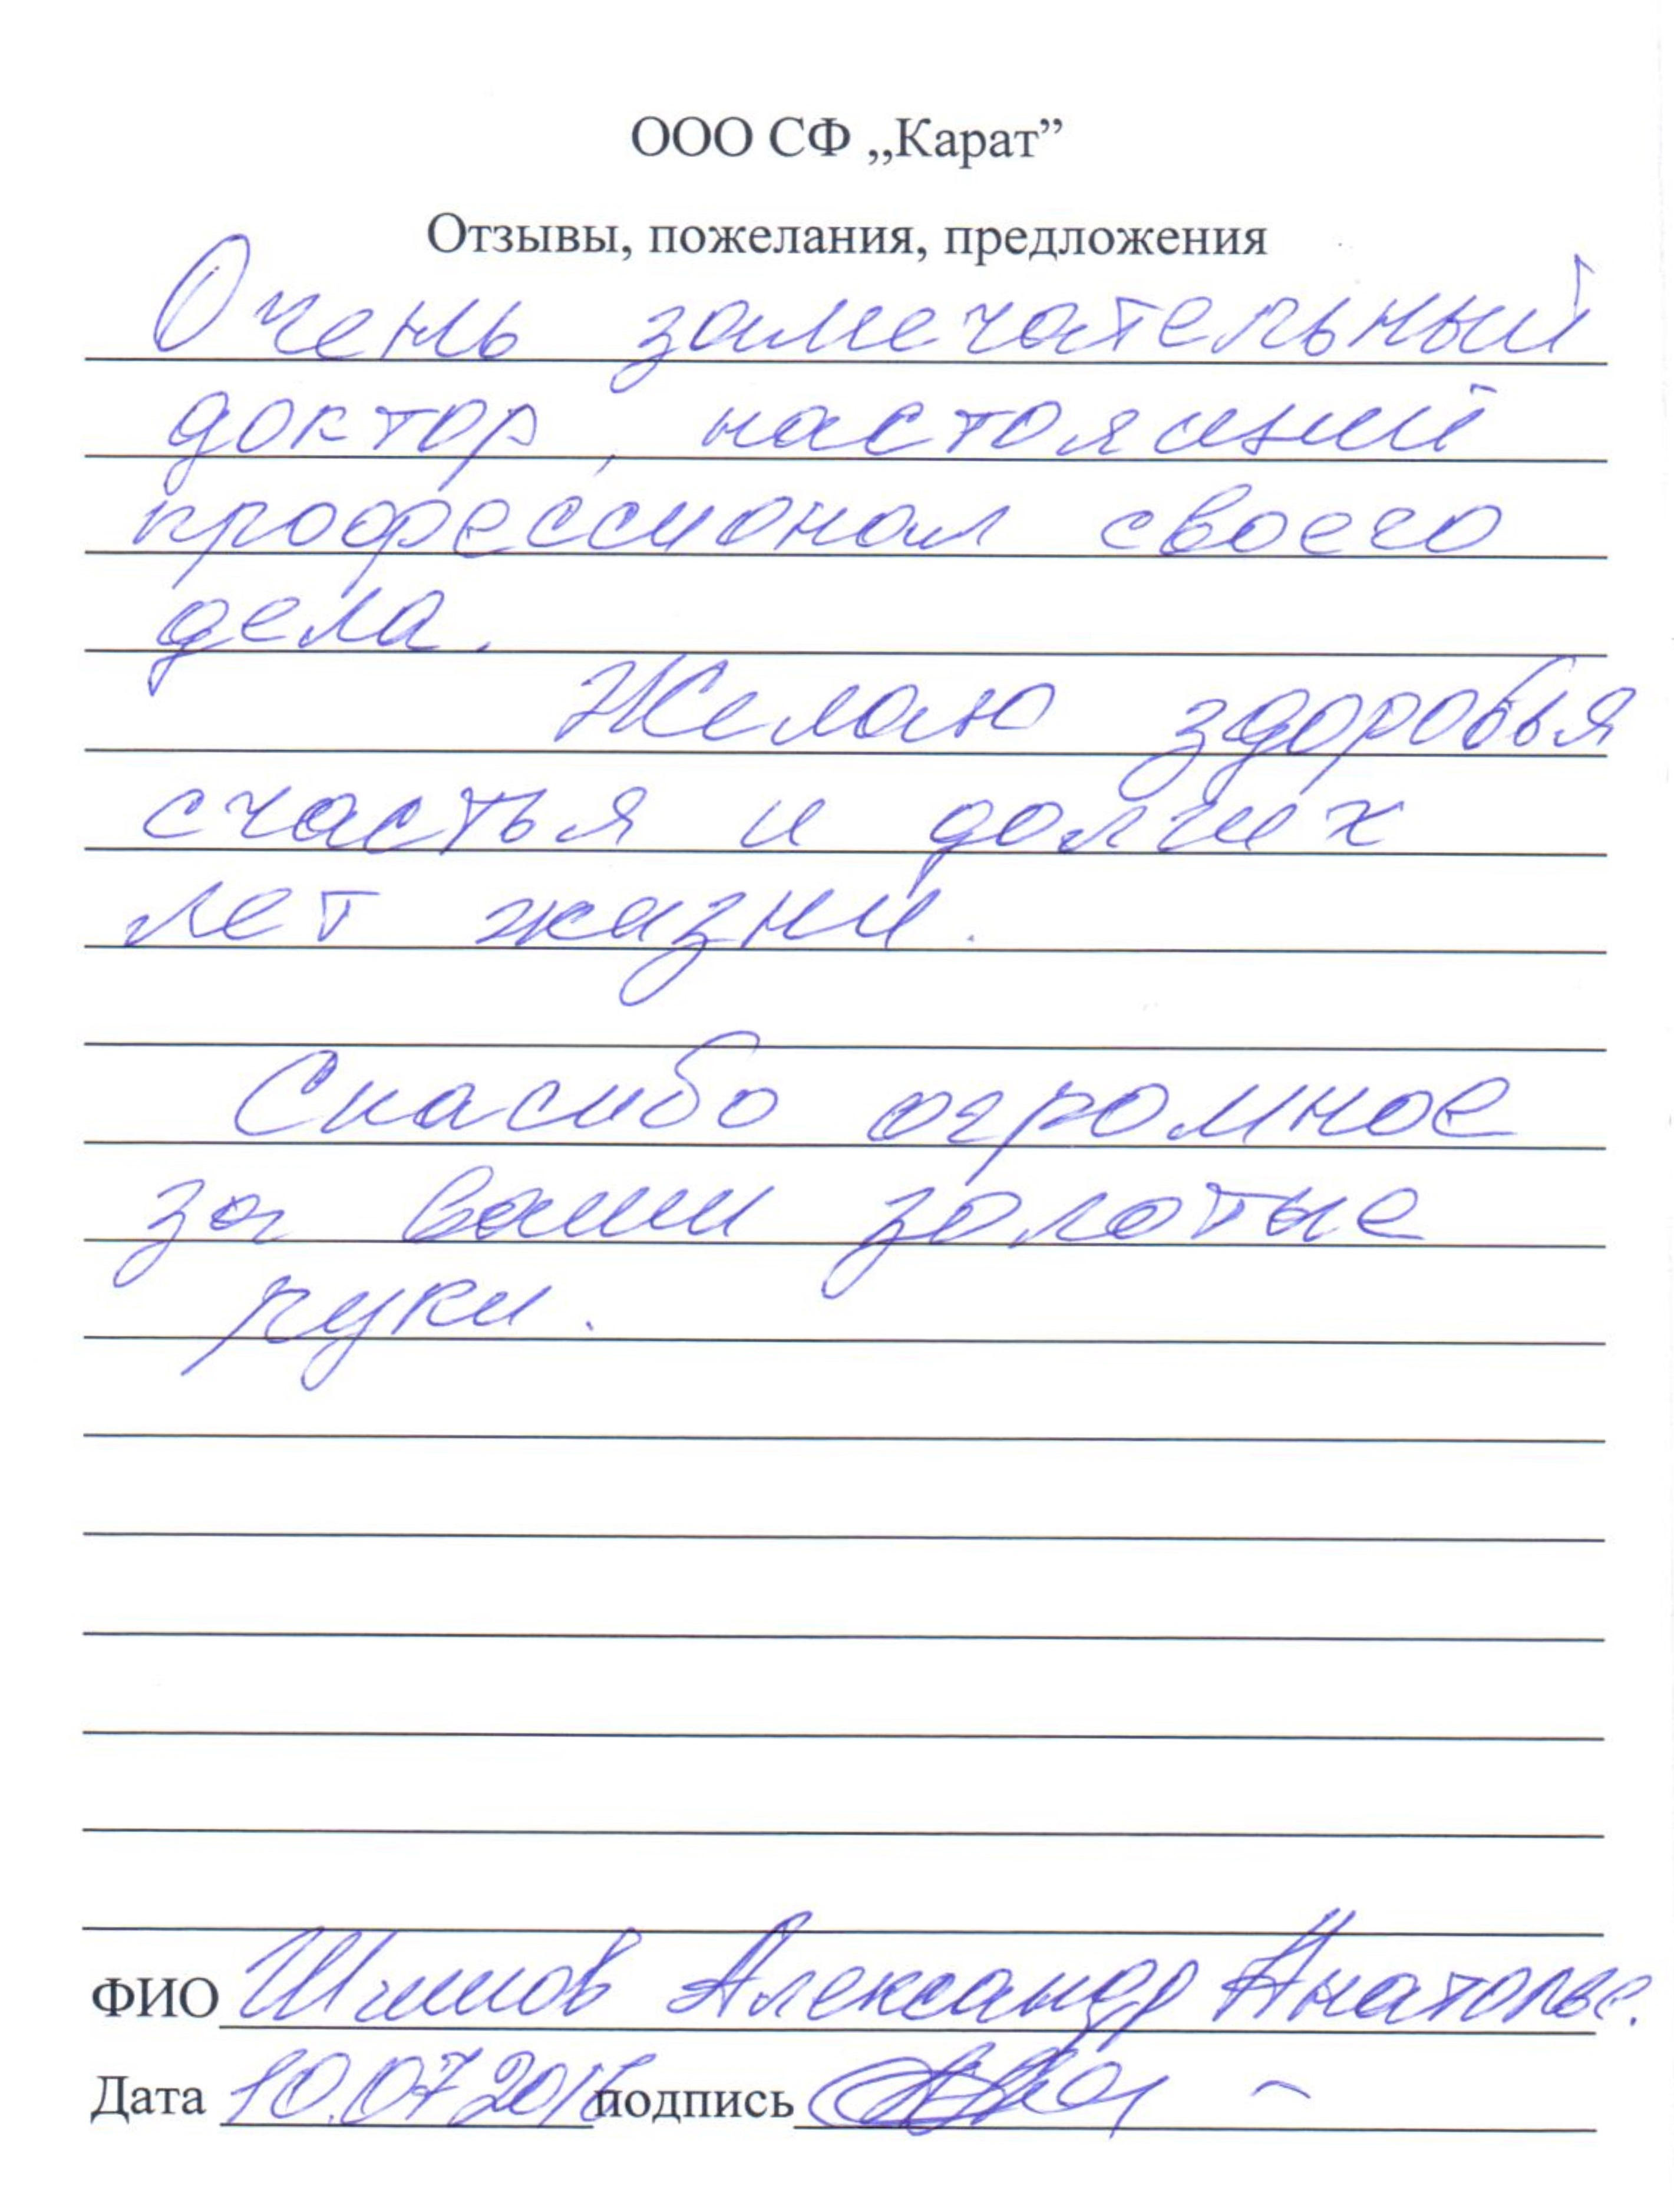 ООО СФ „Карат”
Отзывы, пожелания, предложения
Очень замечательный
доктор, настоящий
профессионал своего
дела.
Желаю здоровья
счастья и долгих
лет жизни.
Спасибо огромное
за ваши золотые
руки.
ФИО Александр Анатолье.
Дата 10.07.2016 подпись